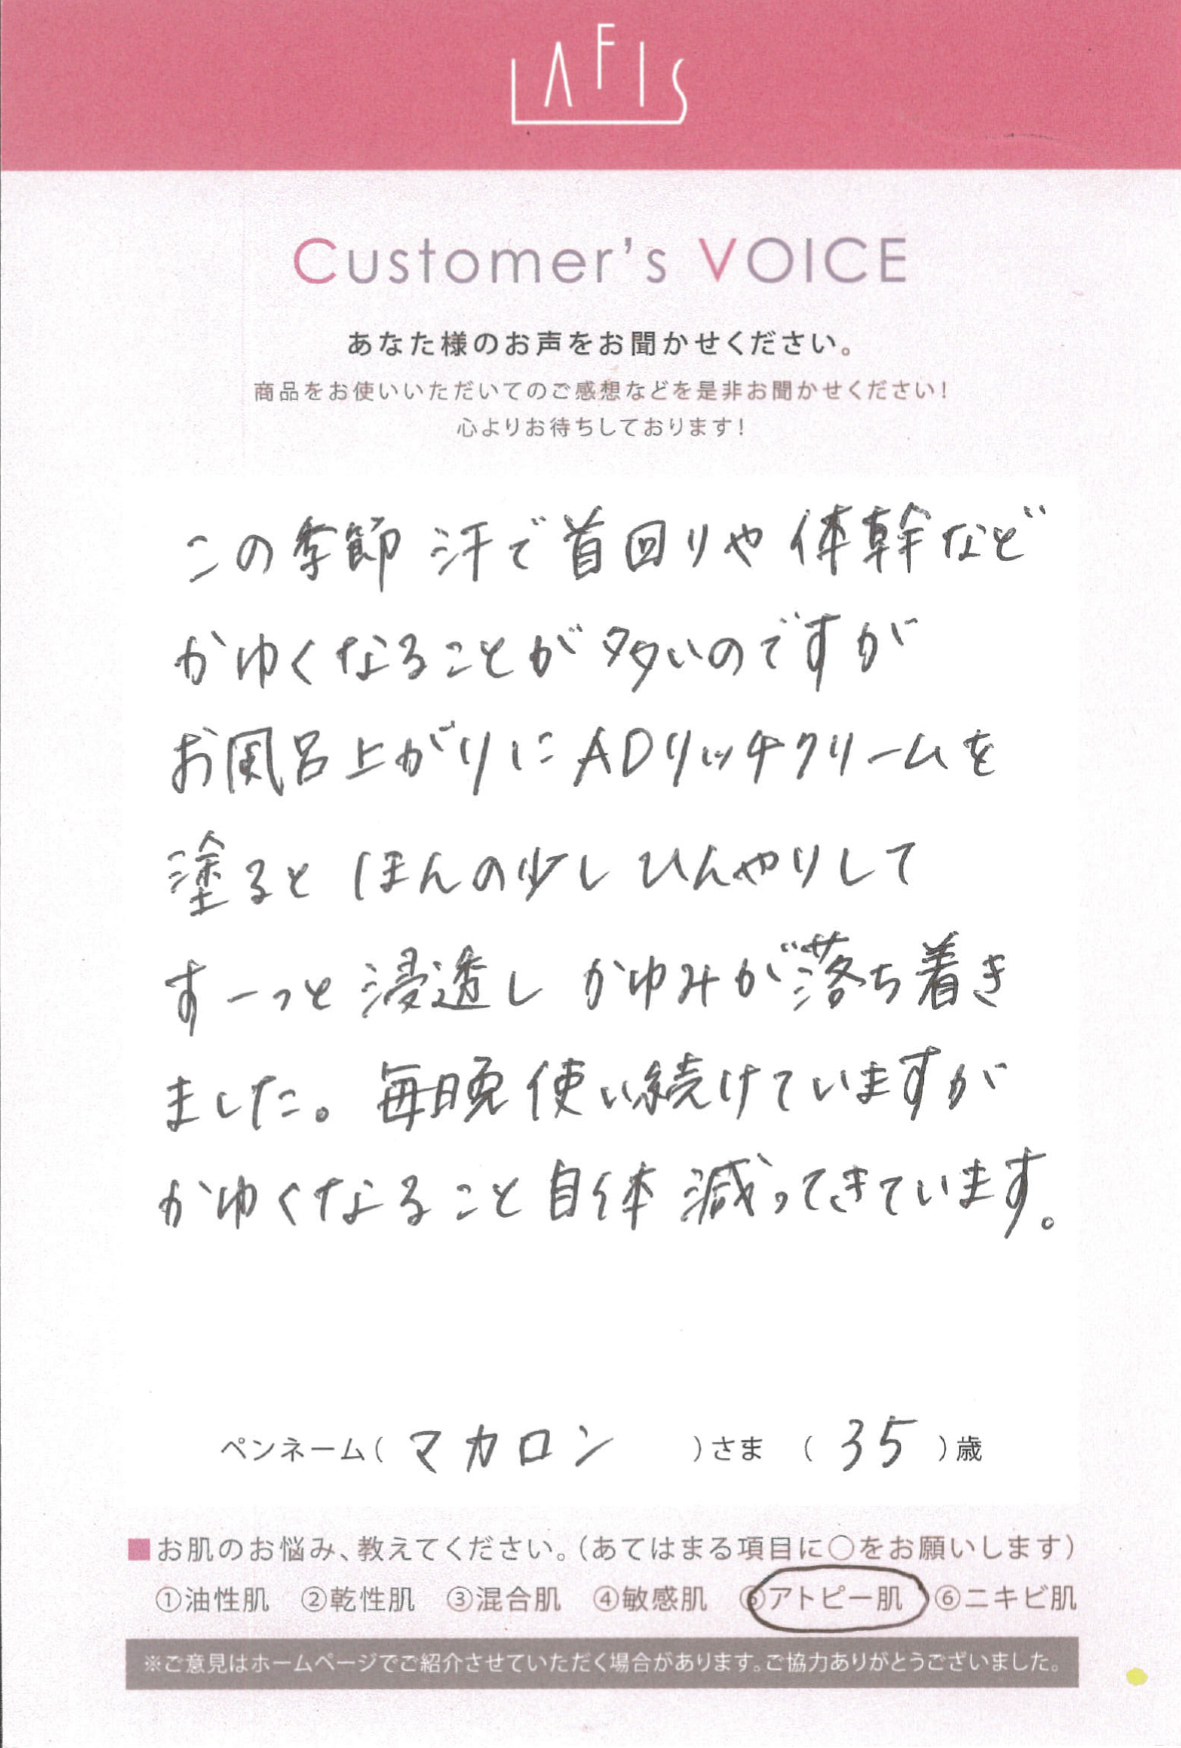 LAFIS
Customer's VOICE
あなた様のお声をお聞かせください。
商品をお使いいただいてのご感想などを是非お聞かせください!
心よりお待ちしております!
この季節 汗で首回りや体幹など
かゆくなることが多いのですが
お風呂上がりにADリッチクリームを
塗ると ほんの少しひんやりして
すーっと浸透し かゆみが落ち着き
ました。毎晩使い続けていますが
かゆくなること自体 減ってきています。
ペンネーム( マカロン )さま ( 35 )歳
■お肌のお悩み、教えてください。(あてはまる項目に○をお願いします)
①油性肌 ②乾性肌 ③混合肌 ④敏感肌 ⑤アトピー肌 ⑥ニキビ肌
※ご意見はホームページでご紹介させていただく場合があります。ご協力ありがとうございました。